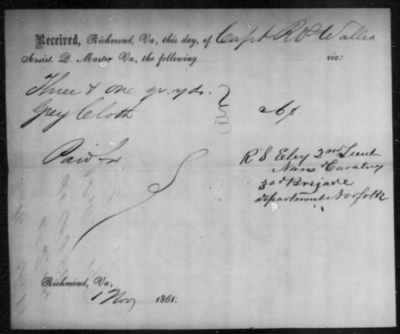 Received, Richmond, Va, this day, of Capt R. P. Waller
Assist. Q. Master Va, the following viz:
Three & one qr. yds.
Grey Cloth
Paid for
R S Eley 2nd Lieut
Cavalry
3d Brigade
Department Norfolk
Richmond, Va,
1 Nov 1861.